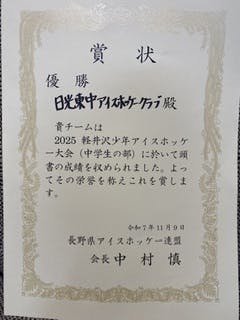 賞状
優勝
日光東中アイスホッケークラブ殿
貴チームは
2025 軽井沢少年アイスホッケ
ー大会（中学生の部）に於いて頭
書の成績を収められました。よっ
てその栄誉を称えこれを賞しま
す。
令和7年11月9日
長野県アイスホッケー連盟
会長 中村慎